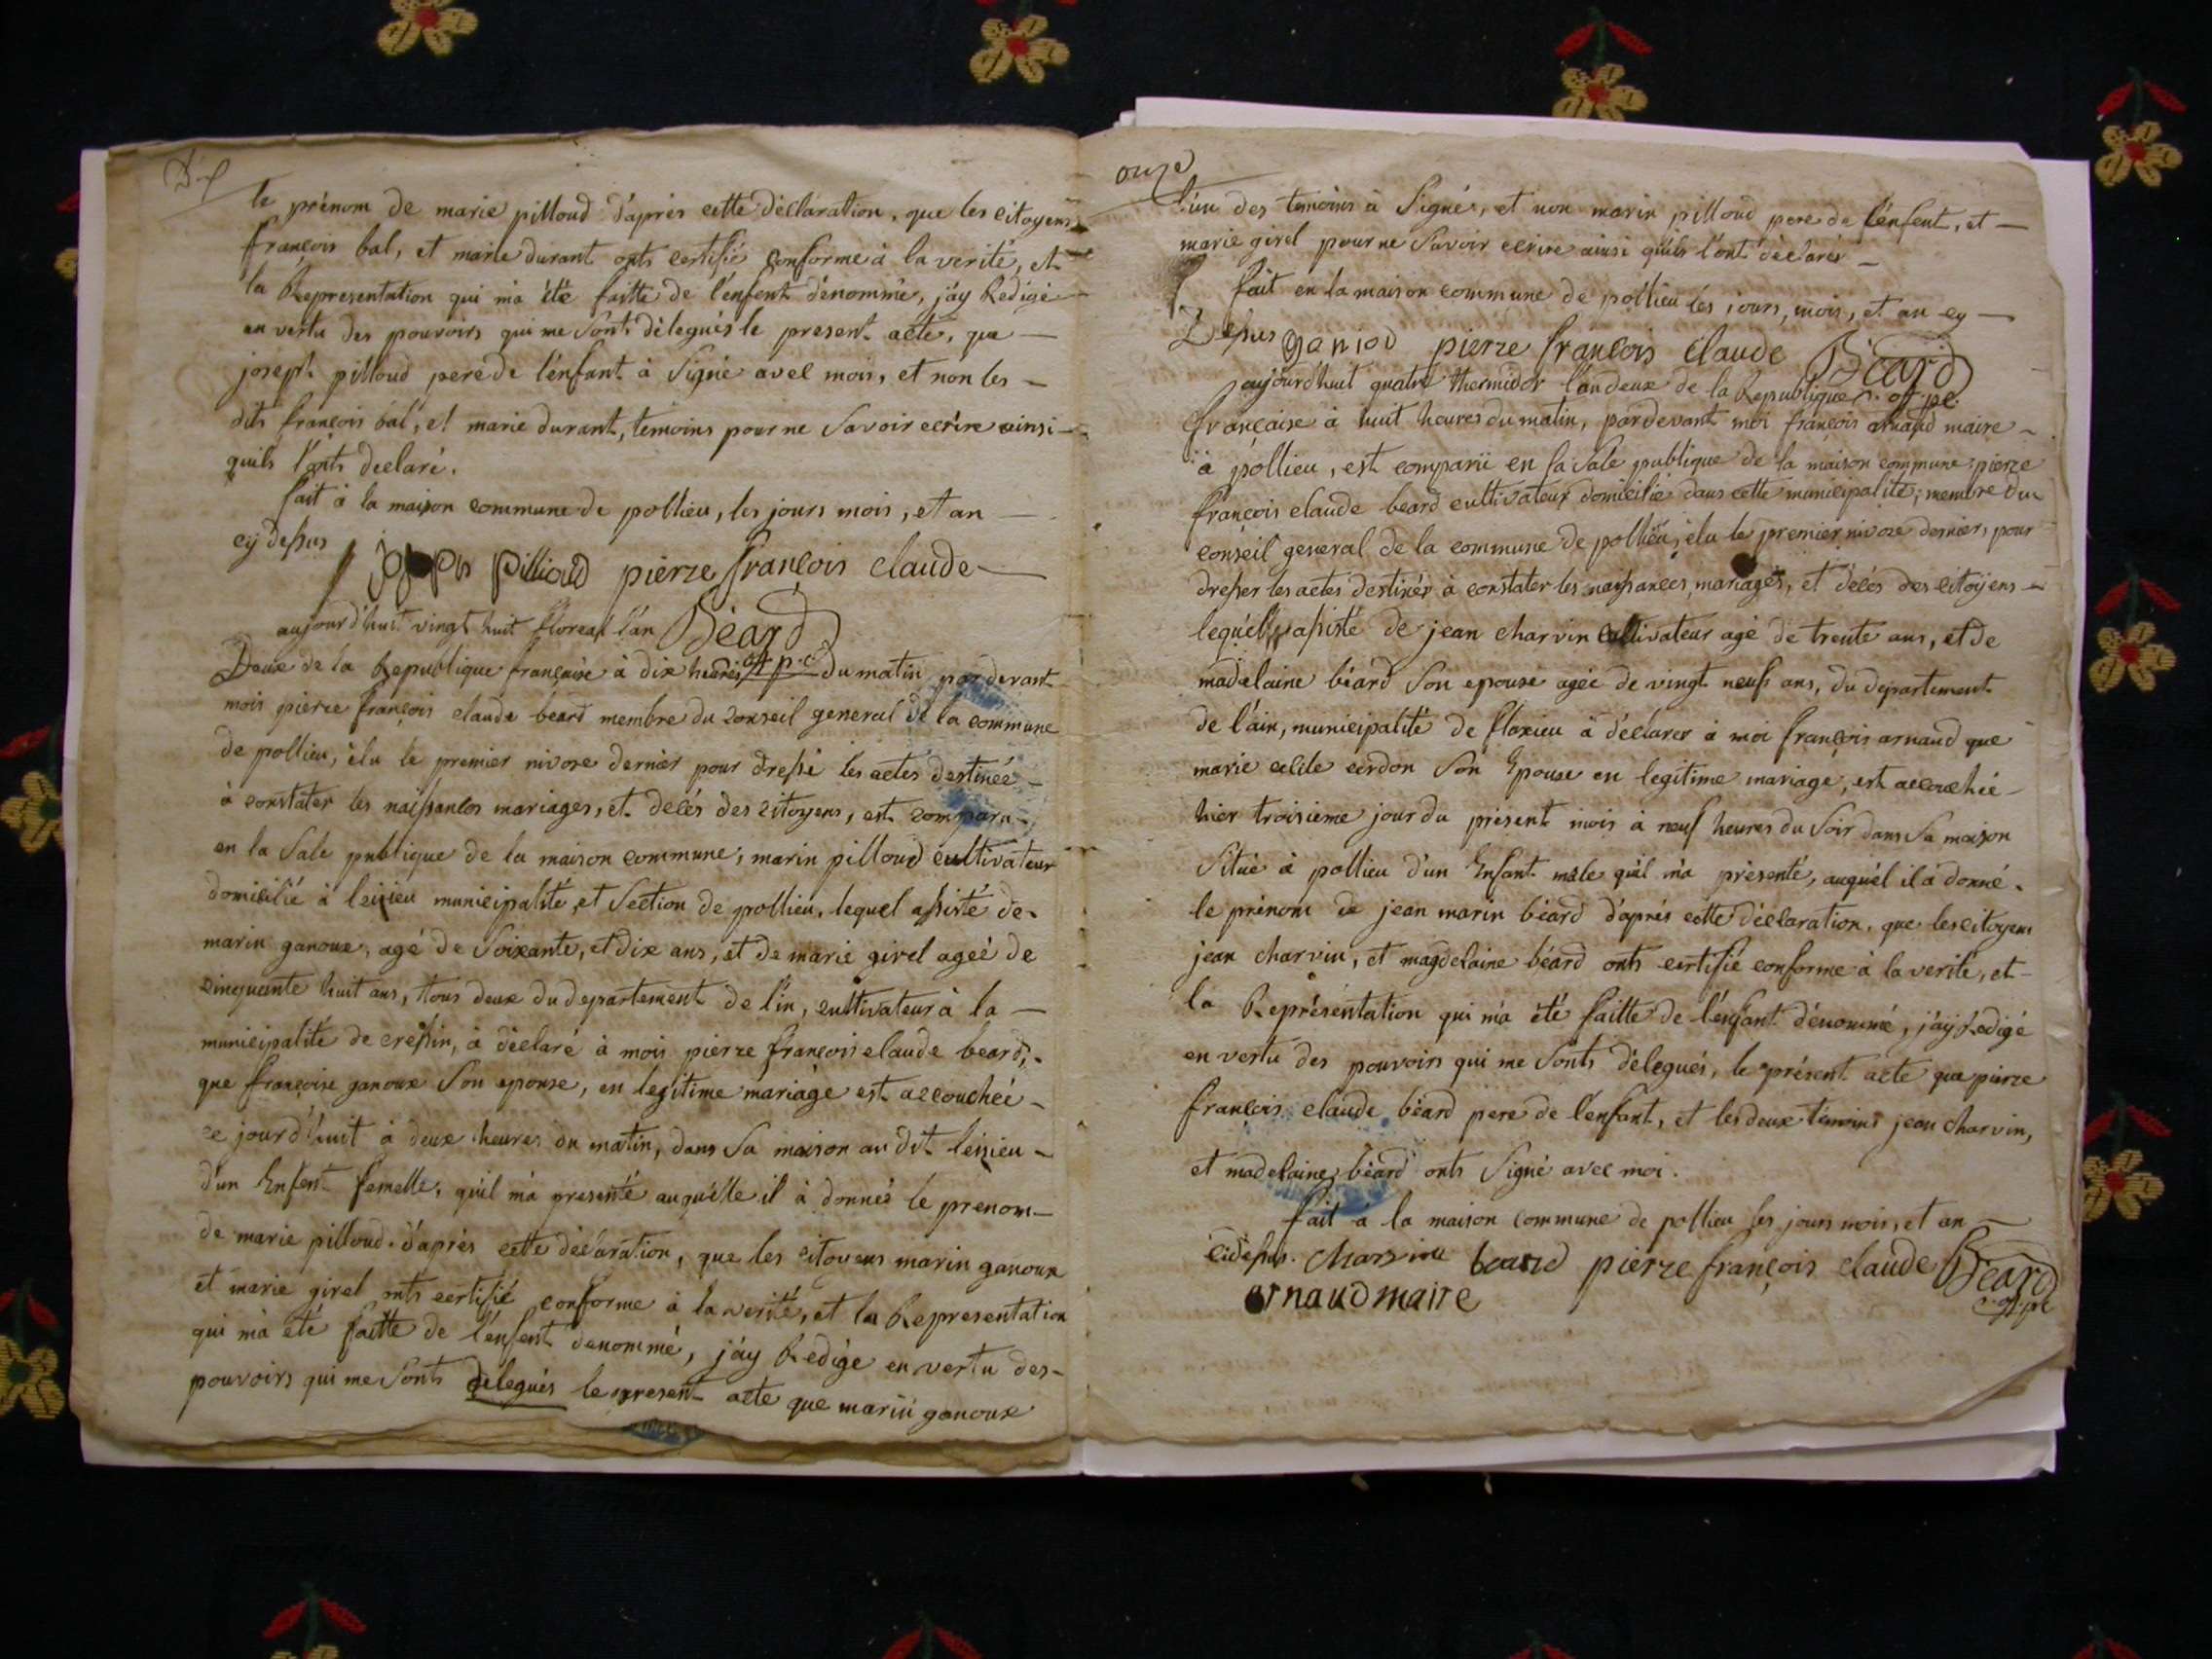 le prénom de marie pilloud d'après cette déclaration, que les citoyens
françois bal, et marie durant onts certifié conforme à la verité, et
la Representation qui m'a été faitte de l'enfent dénommé, j'ay Redigé
en vertu des pouvoirs qui me Sonts délegués le present acte, que
joseph pilloud pere de l'enfant à Signé avec mois, et non les
dits françois bal, et marie durant, temoins pour ne Savoir ecrire ainsi
quils l'onts declaré.
fait à la maison commune de pollieu, les jours mois, et an
cy dessus
pillioud pierre françois claude
aujourd'huit vingt huit floreal l'an Béard
Deux de la Republique française à dix heures off p.c du matin pardevant
mois pierre françois claude beard membre du Conseil general de la commune
de pollieu, élu le premier nivose dernier pour dressé les actes destinéé
à constater les naissances mariages, et decés des citoyens, est comparu
en la Sale publique de la maison commune, marin pilloud cultivateur
domicilié à leissieu municipalité, et Section de pollieu, lequel assisté de
marin ganoux, agé de Soixante, et dix ans, et de marie girel ageé de
cinquante huit ans, tous deux du departement de l'in, cultivateur à la
municipalité de cressin, à déclaré à mois pierre françois claude beard,
que françoise ganoux Son epouse, en legitime mariage est accouchéé
ce jourd'huit à deux heures du matin, dans Sa maison au dit leissieu
d'un Enfent femelle, quil m'à presenté auquélle il à donnéé le prenom
de marie pilloud. d'après cette déclaration, que les citoyens marin ganoux
et marie girel onts certifié conforme à la verité, et la Representation
qui m'à été faitte de l'enfent dénommé, j'ay Redigé en vertu des
pouvoirs qui me Sonts délegués le present acte que marin ganoux
onze
l'un des temoins à Signé, et non marin pilloud pere de l'enfent, et
marie girel pour ne Savoir ecrire ainsi quils l'ont déclarés
fait en la maison commune de pollieu les jours, mois, et an cy
Dessus pierre françois claude Béard
aujourd'huit quatre thermidor l'an deux de la Republique off. pc.
française à huit heures du matin, pardevant moi françois arnaud maire
à pollieu, est comparü en la Sale publique de la maison commune pierre
françois claude beard cultivateur domicilié dans cette municipalité, membre du
conseil general de la commune de pollieu, élu le premier nivose dernier, pour
dresser les actes destinés à constater les naissances, mariages, et décés des citoyens
lequel assisté de jean charvin cultivateur agé de trente ans, et de
madelaine béard Son epouse agéé de vingt neuf ans, du departement
de l'ain, municipalité de flaxieu à déclarer à moi françois arnaud que
marie cerdon Son Epouse en legitime mariage, est accouchéé
hier troisieme jour du présent mois à neuf heures du Soir dans Sa maison
Situé à pollieu d'un Enfant mâle quil m'à présenté, auquél il à donné
le prénom de jean marin béard d'après cette déclaration, que les citoyens
jean charvin, et magdelaine béard onts certifié conforme à la verité, et
la Représentation qui m'à été faitte de l'enfant dénommé, j'ay Redigé
en vertu des pouvoirs qui me Sonts délegués, le présent acte que pierre
françois claude béard pere de l'enfant, et les deux témoins jean charvin,
et madelaine béard onts Signé avec moi.
fait à la maison commune de pollieu les jours mois, et an
cidessus. pierre françois claude Béard
arnaud maire off. pc